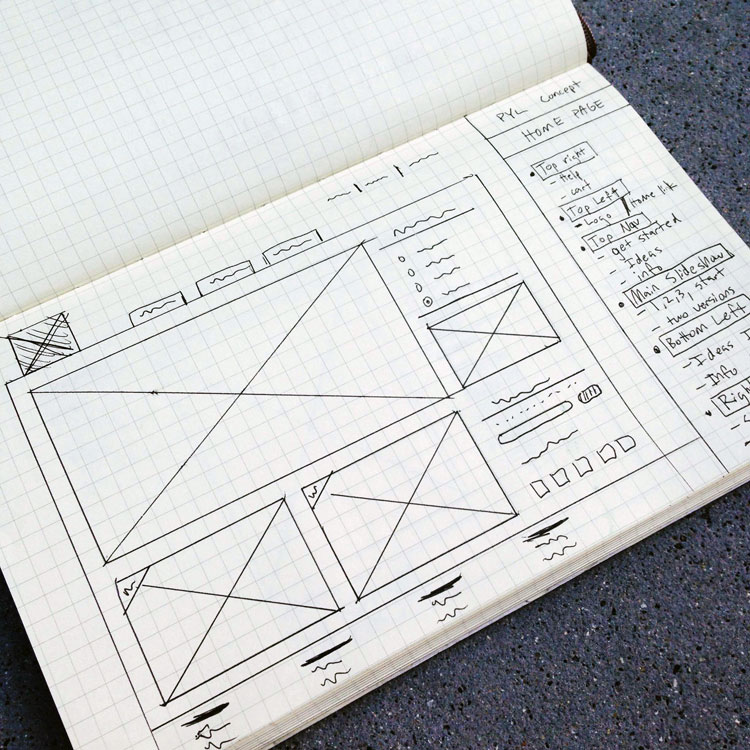 PYL Concept
HOME PAGE
Top right
- Help
- cart
Top Left
- Logo / Home link
Top Nav
- get started
- Ideas
- info
Main Slideshow
- 1, 2, 3, start
- two versions
Bottom Left
- Ideas
- Info
Right